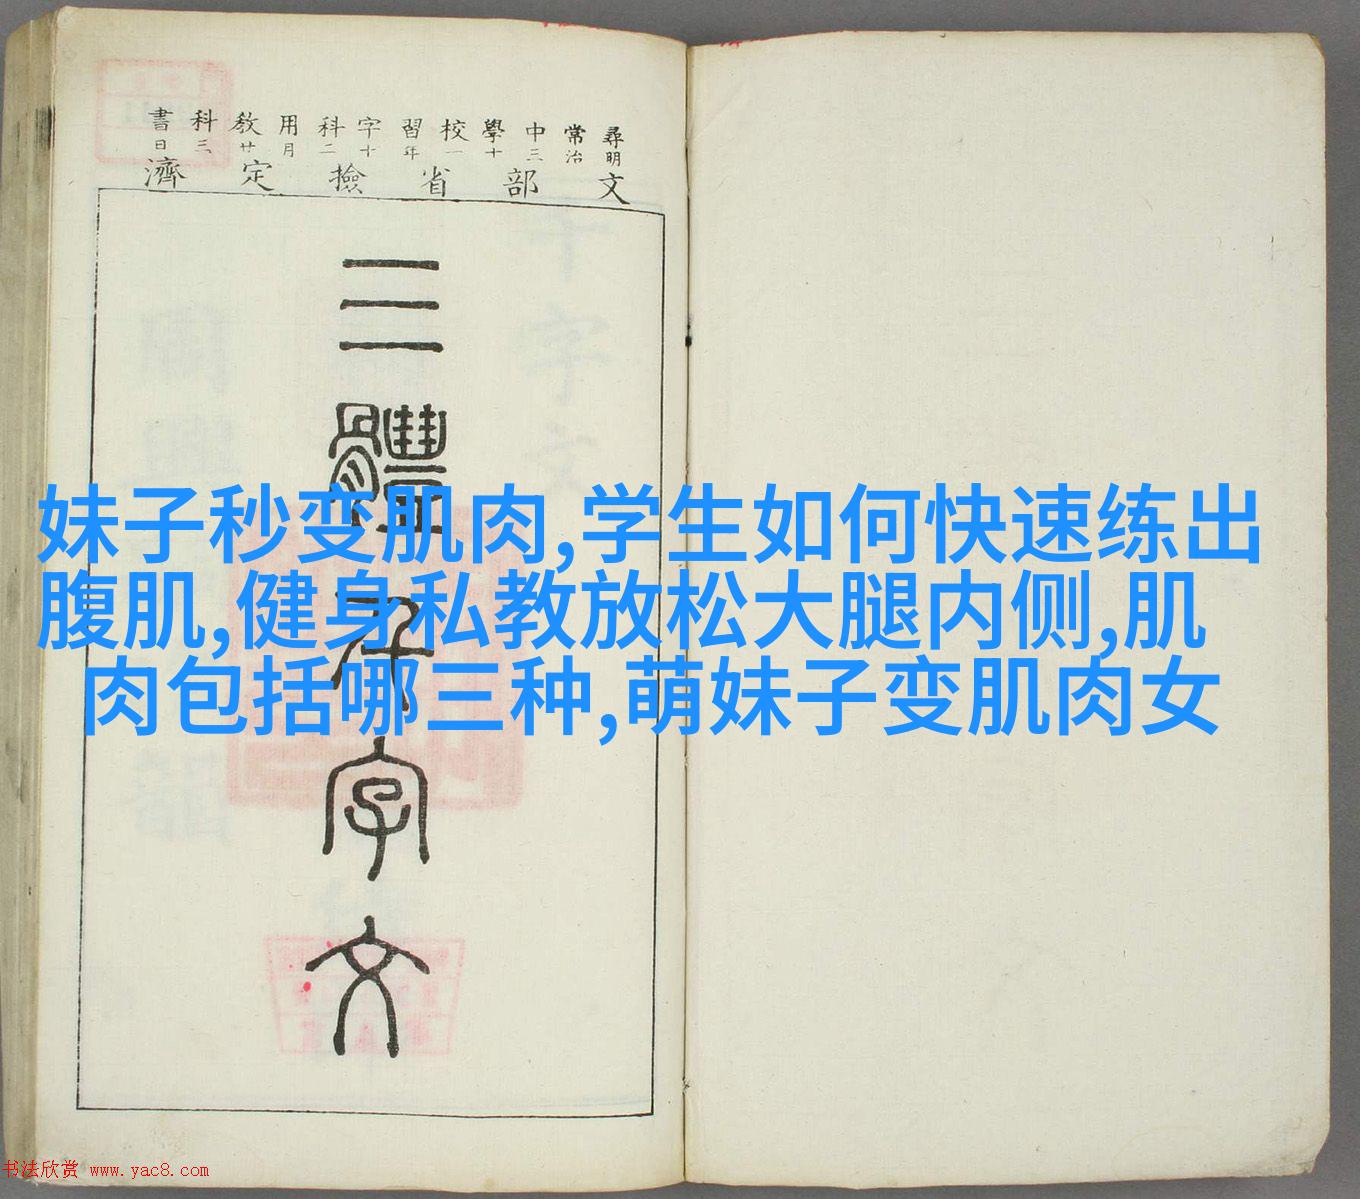 尋常中學校習字科用教科書
明治三十一年十二月廿三日
文部省撿定濟
三體千字文
妹子秒变肌肉,学生如何快速练出
腹肌,健身私教放松大腿内侧,肌
肉包括哪三种,萌妹子变肌肉女
书法欣赏 www.yac8.com